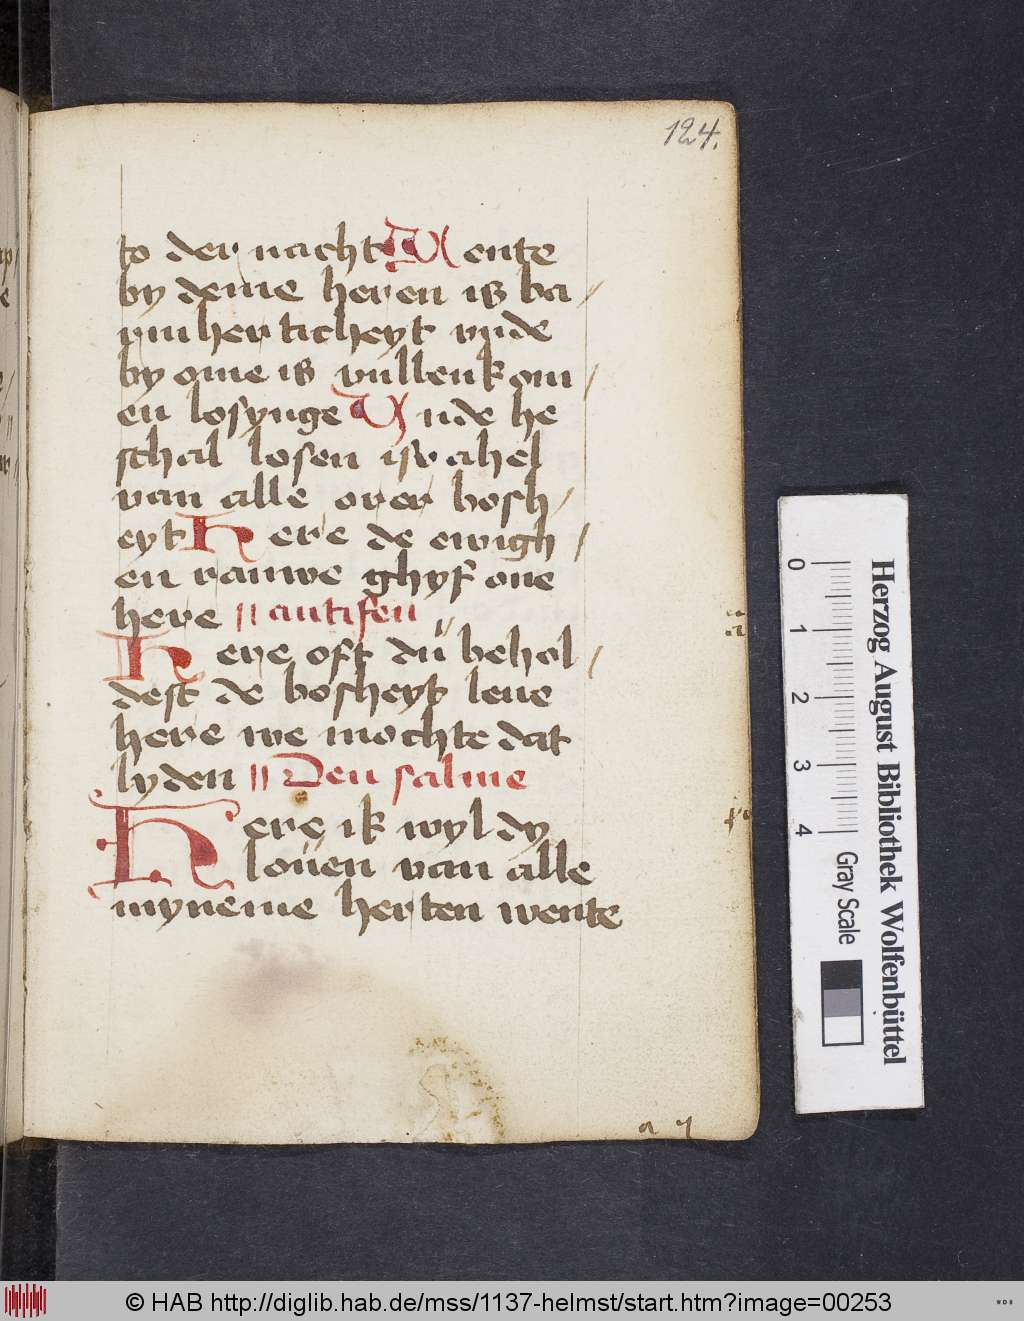 124.
to der nacht Wente
by deme heren is ba/
rmherticheyt vnde
by ome is vullenkom/
en losynge Vnde he
schal losen israhel
van alle orer bosh/
eyt Here de ewigh/
en rauwe ghyf one
here // antifen
Here oft du behol/
dest de bosheyt leue
here we mochte dat
lyden // Den salme
Here ik wyl dy
louen van alle
myneme herten wente
a y
0 1 2 3 4
Gray Scale
Herzog August Bibliothek Wolfenbüttel
© HAB http://diglib.hab.de/mss/1137-helmst/start.htm?image=00253